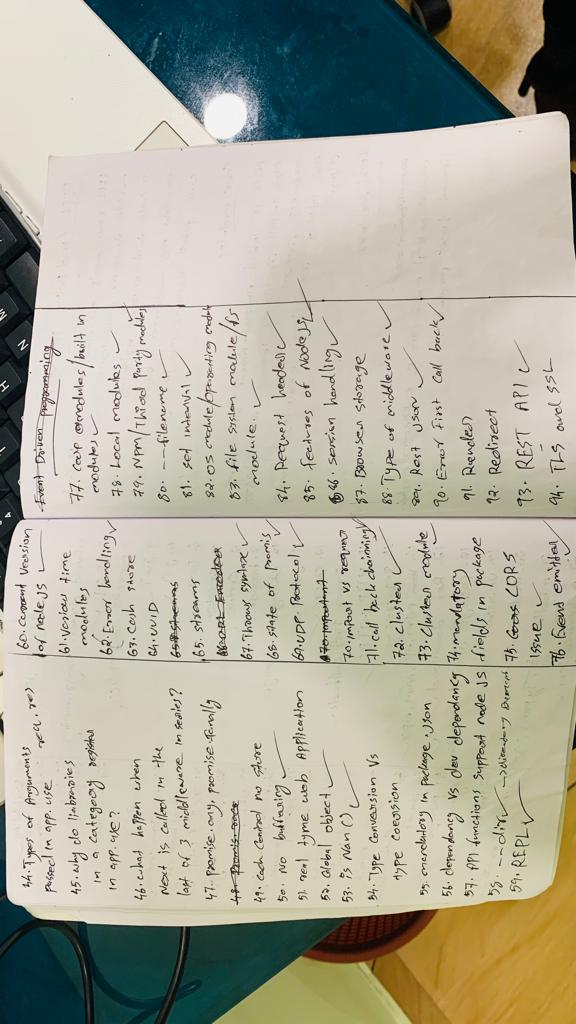 44. Types of Arguments
passed in app.use req, res
45. why do liabraries
in a category register
in app.use?
46. what happen when
Next is called in the
last of 3 middleware in series?
47. promise.any, promise.finally
48. Promis race
49. Cash Control no store
50. No buffering
51. real tyme web Application
52. Global object
53. is Nan()
54. Type Conversion Vs
type coersion
55. mandatory in package.json
56. dependancy vs dev dependancy
57. API functions support node JS
58. --dir → directory
59. REPL
60. current version
of node JS
61. various time
modules
62. Error handling
63. Cash store
64. UUID
65. streams
65. streams
67. Throws syntax
68. state of promis
69. UDP Protocol
70. important
70. import vs require
71. call back chainning
72. Cluster
73. Cluster module
74. mandatory
fields in package
75. Cors CORS
issue
76. Event emitter
Event Driven programming
77. Core modules/built in
modules
78. Local modules
79. NPM/Third Party modules
80. --filename
81. set interval
82. OS module/operating module
83. file system module/fs
module.
84. Request headers
85. features of Node js
86. session handling
87. Browser storage
88. Type of middleware
89. Rest json
90. Error first call back
91. Render
92. Redirect
93. REST API
94. TLS and SSL